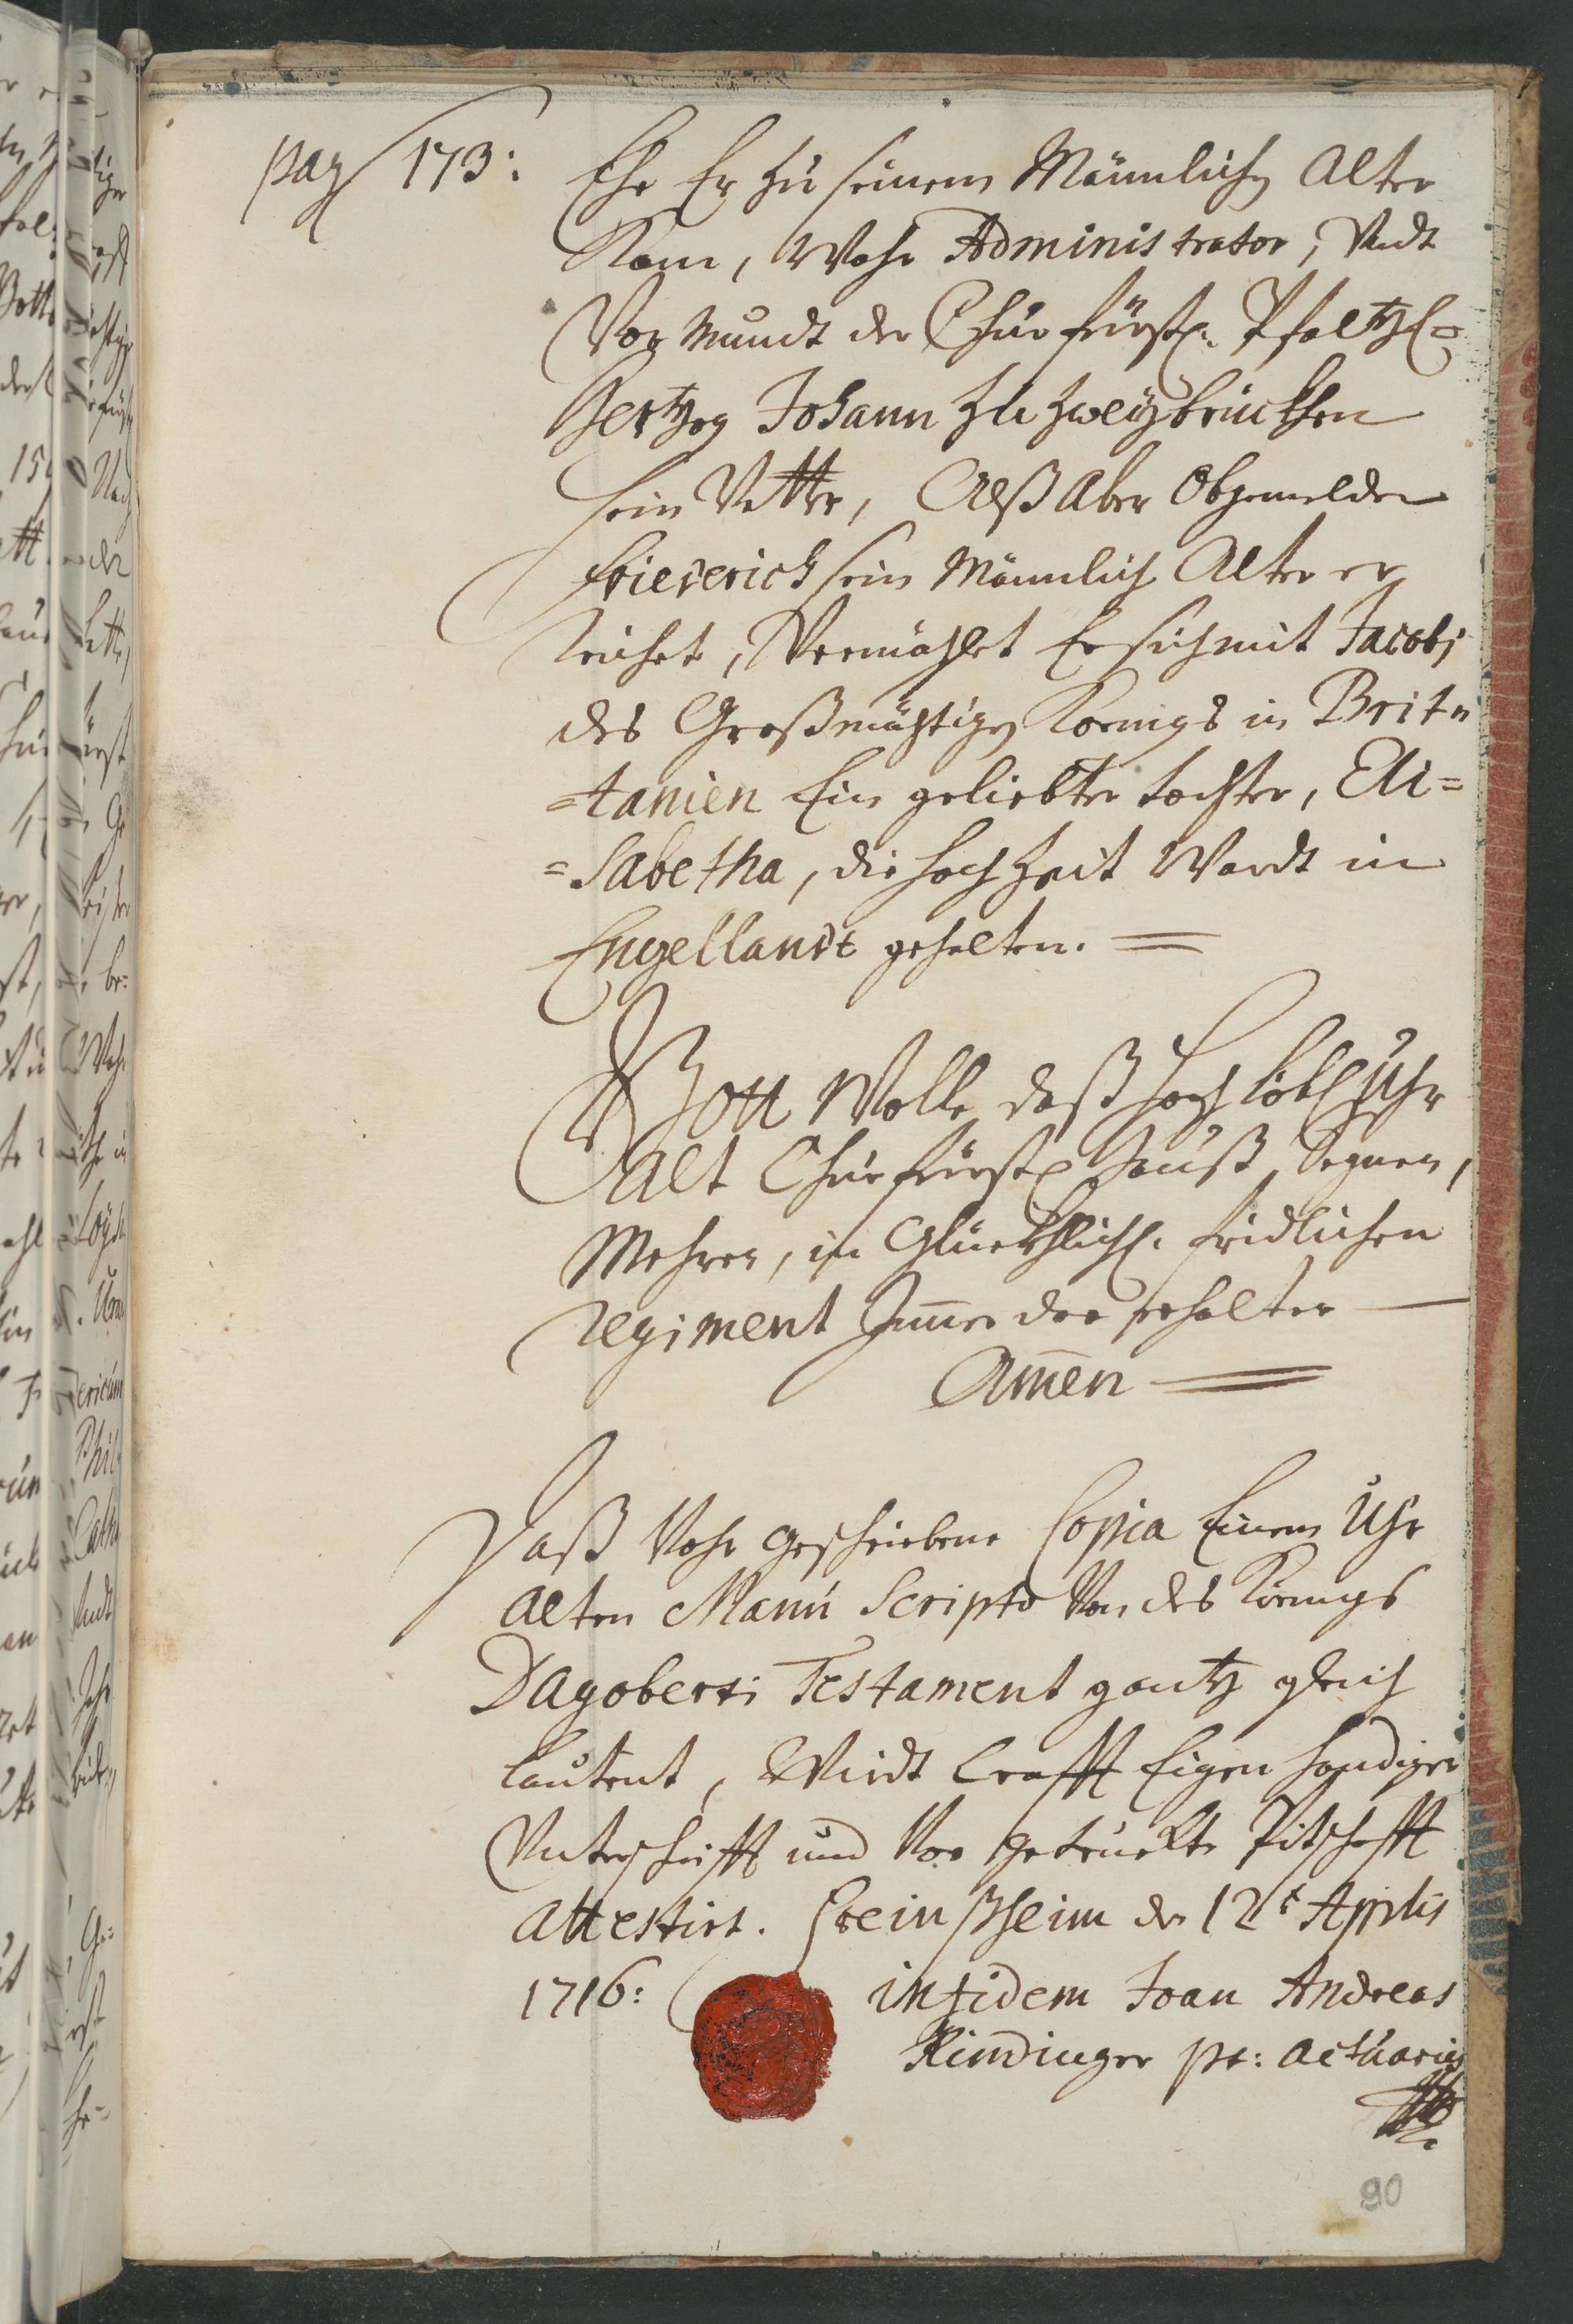 pag 173: Ehe Er zu seinem Männlichen Alter
Kam, Wahr Administrator, Undt
Vor Mundt der Churfürstl: Pfaltz
Hertzog Johann zu Zweÿbrückhen
sein Vetter, Alß Aber Obgemelder
Friederich sein Männlich Alter er
reichet, Vermählet Er sich mit Jacobi
des Großmächtigen Koenigs in Brit=
=tanien Ein geliebter tochter, Eli=
=sabetha, die hoch Zeit Wardt in
Engellandt gehalten.
Gott Wolle daß hoch löbl Uhr
alt Churfürstl Hauß, Segnen,
Mehren, in Glückhlichl: fridlichen
regiment Jm̄er dar erhalten
Am̄en
Daß Vohr geschriebene Copia Einem Uhr
alten Manu Scripto Von des Königs
Dagoberti Testament gantz gleich
lautent, Wirdt Crafft Eigen handiger
Unterschrifft und Vor getruckte Pitschafft
attestirt. Steinßheim den 12t Aprilis
1716: in fidem Joan Andreas
Kindinger pt: actuarius
90